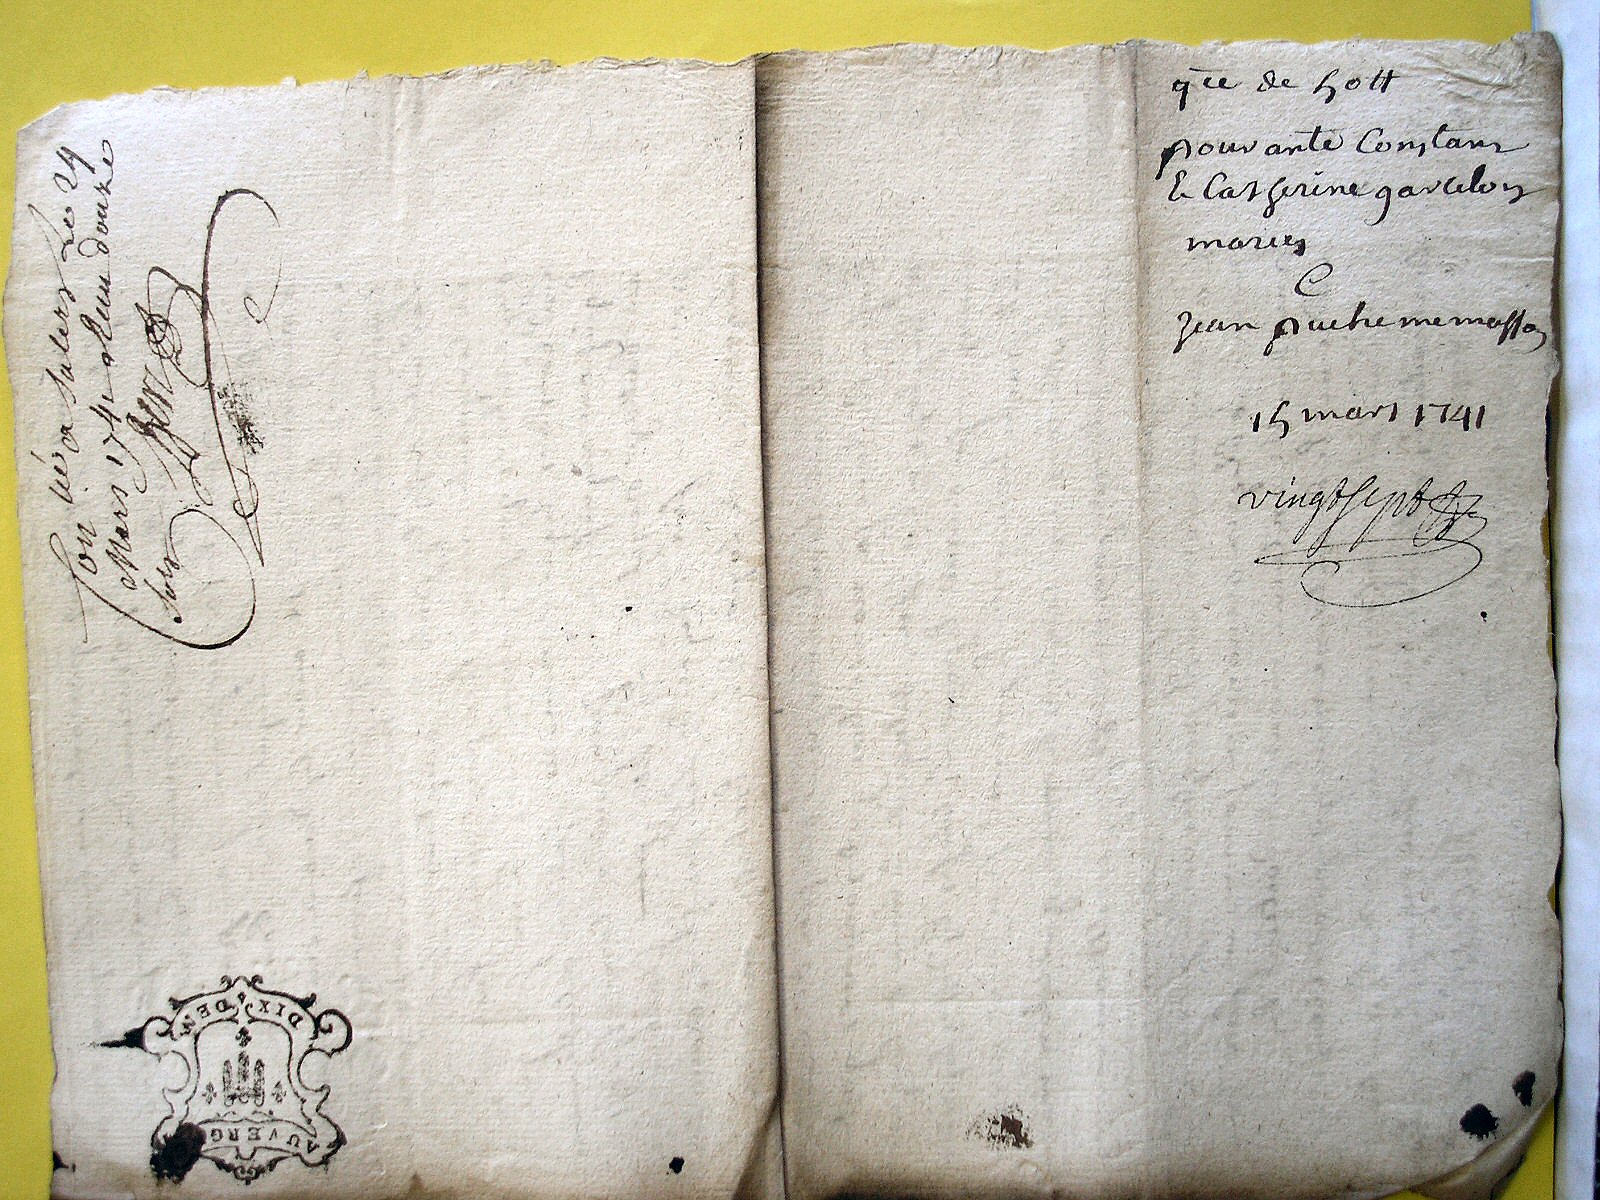 qce de 50 tt
pour ante Constans
& Catherine garcelon
maries
C
Jean puehememasson
15 mars 1741
vingt sept
Con lé a Salers Le 24
Mars 1741 Reçu douze
sols
DIX DEN
AUVERG